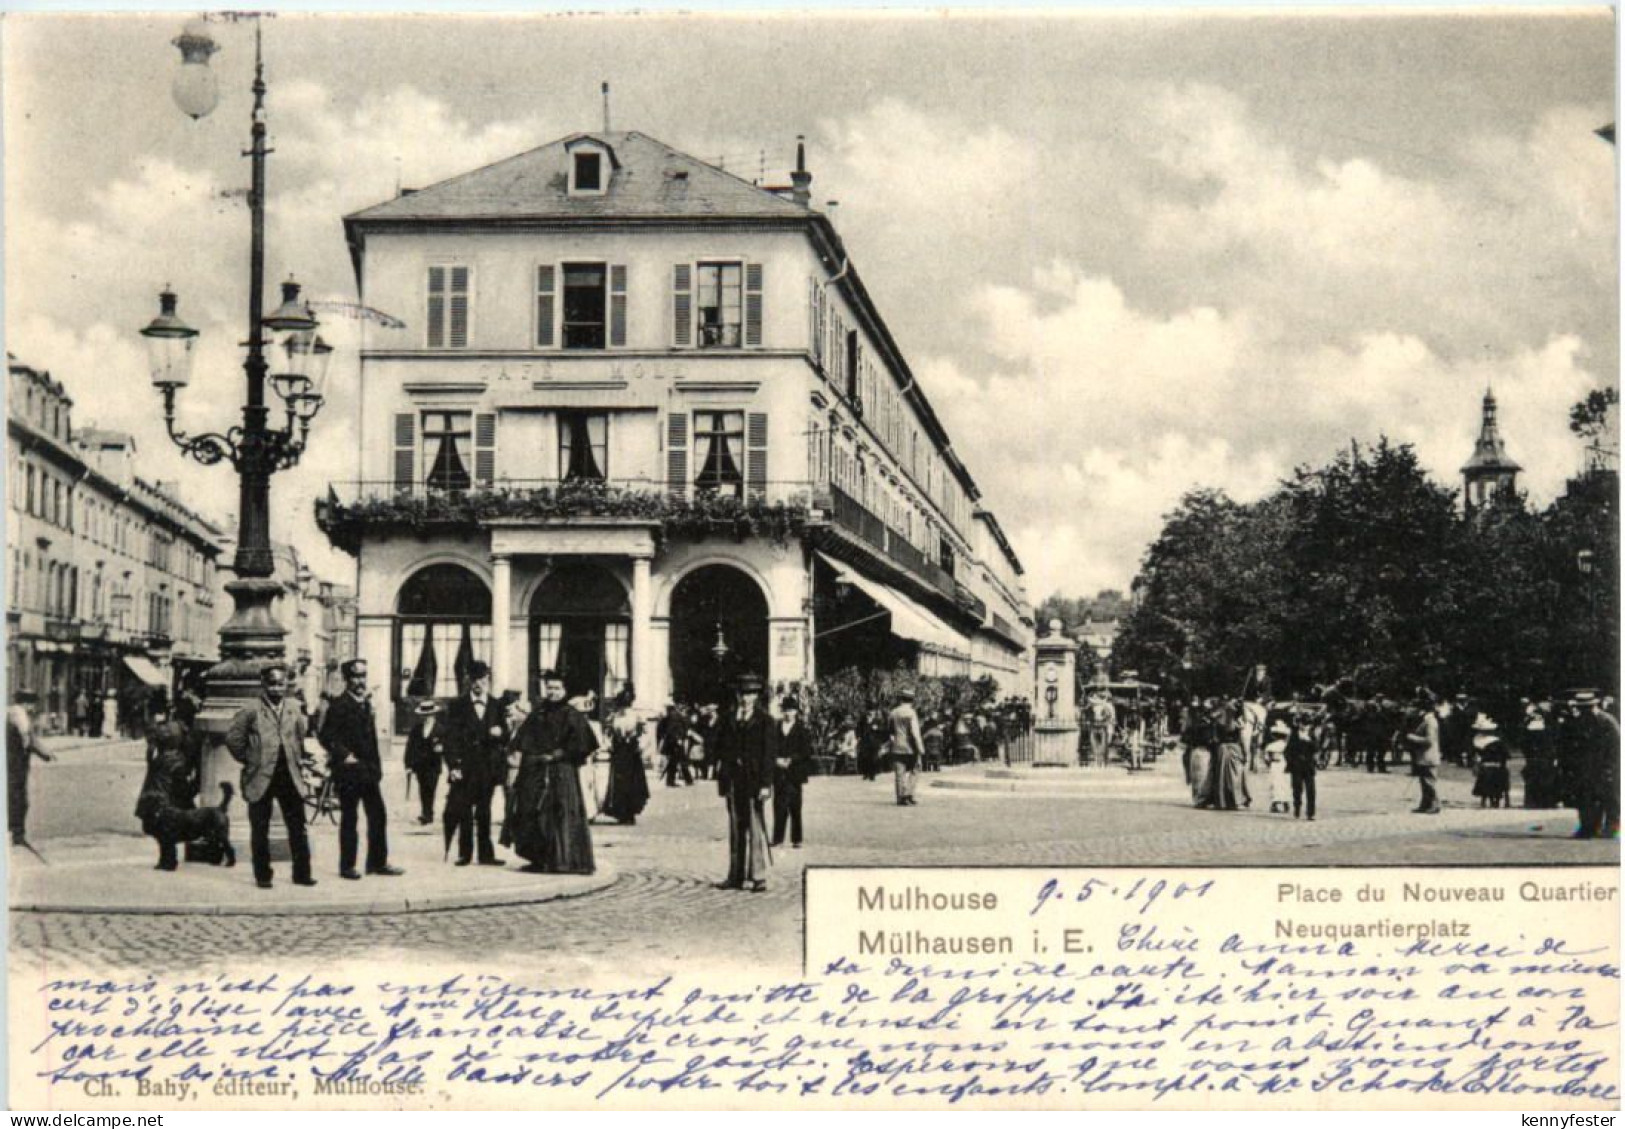 CAFÉ MOLL
Mulhouse 9.5.1901 Place du Nouveau Quartier
Neuquartierplatz
Mülhausen i. E. Chère Anna. Merci de
ta dernière carte. Maman va mieux
mais n'est pas entièrement quitte de la grippe. J'ai été hier soir au con
cert d'église avec Mme Klug. Superbe et réussi en tout point. Quant à la
prochaine pièce française je crois que nous nous en abstiendrons
car elle n'est pas de notre goût. Espérons que vous vous portez
tous bien. Mille baisers pour toi & les enfants. Compl. à Mr
Ch. Bahy, éditeur, Mulhouse.
kennyfester